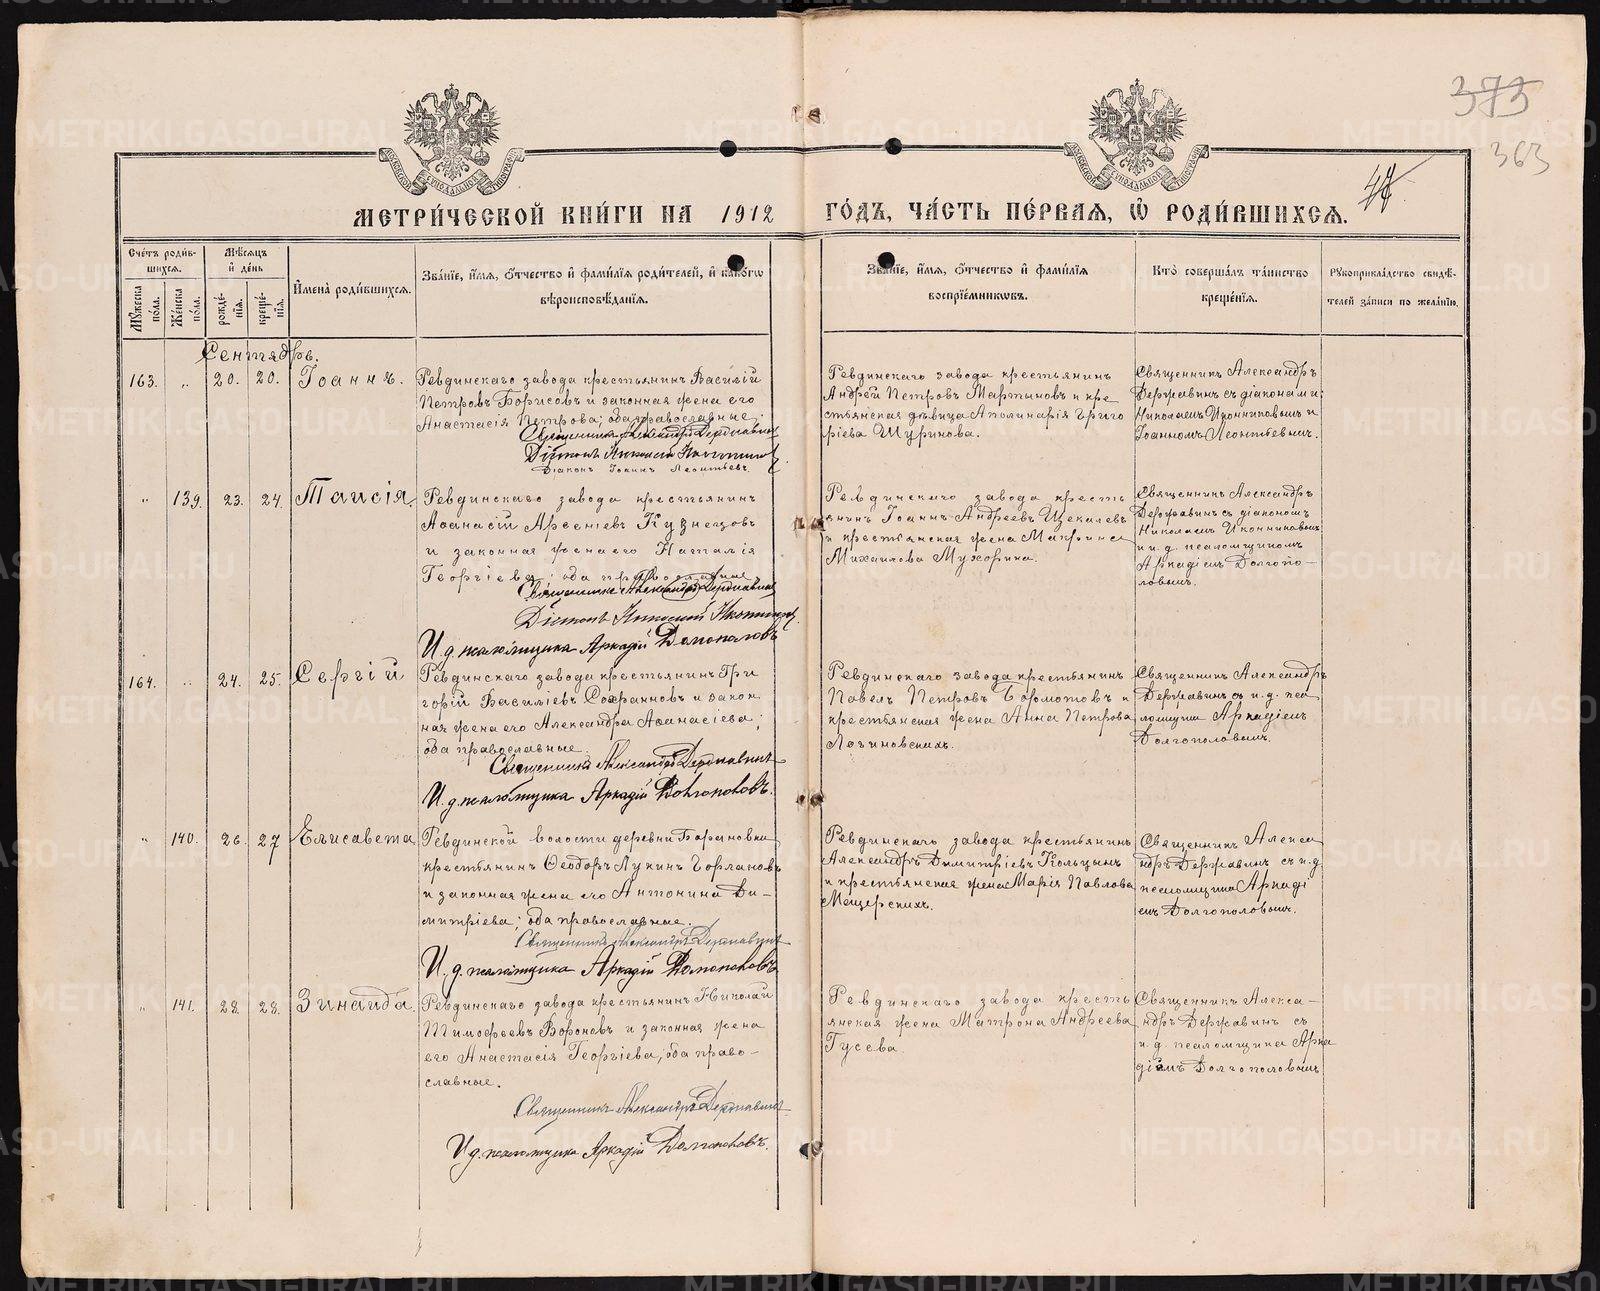 375
363
МЕТРИ́ЧЕСКОЙ КНИ́ГИ НА 1912 ГО́ДЪ, ЧА́СТЬ ПЕ́РВАЯ, Ѡ РОДИ́ВШИХСЯ.
Счётъ роди́в-
шихся.
Мѣсяцъ
и́ де́нь
Мꙋжеска по́ла.
Же́нска по́ла.
рожде́-
нія.
креще́-
нія.
И́мена̀ роди́вшихся.
Зва́ніе, и́мя, о́тчество и́ фами́лія роди́телей, и́ како́гѡ
вѣроисповѣ́данія.
Зва́ніе, и́мя, о́тчество и́ фами́лія
воспріе́мникѡвъ.
Кто̀ соверша́лъ та́инство
креще́нія.
Рꙋкоприкла́дство свидѣ́-
телей за́писи по жела́нію.
Сентябрь.
163. „ 20. 20. Іоаннъ.
Ревдинскаго завода крестьянинъ Василій
Петровъ Борисовъ и законная жена его
Анастасія Петрова; оба православные.
Священникъ Александръ Державинъ
Діаконъ Николай Иконниковъ
Діаконъ Іоаннъ Леонтьевъ.
Ревдинскаго завода крестьянинъ
Андрей Петровъ Мартыновъ и кре-
стьянская дѣвица Аполинарія Григо
ріева Шуринова.
Священникъ Александръ
Державинъ съ діаконами:
Николаемъ Иконниковымъ и
Іоанномъ Леонтьевымъ.
„ 139. 23. 24. Таисія.
Ревдинскаго завода крестьянинъ
Аѳанасій Арсеніевъ Кузнецовъ
и законная жена его Наталія
Георгіева; оба православные
Священникъ Александръ Державинъ
Діаконъ Николай Иконниковъ
И. д. псаломщика Аркадій Долгополовъ
Ревдинскаго завода кресть
янинъ Іоаннъ Андреевъ Щекалевъ
и крестьянская жена Макрина
Михаилова Мухорина.
Священникъ Александръ
Державинъ съ діакономъ
Николаемъ Иконниковымъ
и и. д. псаломщикомъ
Аркадіемъ Долгопо-
ловымъ.
164. „ 24. 25. Сергій
Ревдинскаго завода крестьянинъ Гри
горій Василіевъ Софроновъ и закон
ная жена его Александра Аѳанасіева;
оба православные.
Священникъ Александръ Державинъ
И. д. псаломщика Аркадій Долгополовъ.
Ревдинскаго завода крестьянинъ
Павелъ Петровъ и
крестьянская жена Анна Петрова
Логиновскихъ.
Священникъ Александръ
Державинъ съ и. д. пса
ломщика Аркадіемъ
Долгополовымъ.
„ 140. 26. 27 Елисавета
Ревдинской волости деревни Барановки
крестьянинъ Ѳеодоръ Лукинъ Горлановъ
и законная жена его Антонина Ди-
митріева; оба православные.
Священникъ Александръ Державинъ
И. д. псаломщика Аркадій Долгополовъ
Ревдинскаго завода крестьянинъ
Александръ Димитріевъ Кольцынъ
и крестьянская жена Марія Павлова
Мещерскихъ.
Священникъ Алекса
ндръ Державинъ съ и. д.
псаломщика Аркаді
емъ Долгополовымъ.
„ 141. 28. 28. Зинаида.
Ревдинскаго завода крестьянинъ Николай
Тимоѳеевъ Вороновъ и законная жена
его Анастасія Георгіева, оба право-
славные.
Священникъ Александръ Державинъ
И. д. псаломщика Аркадій Долгополовъ.
Ревдинскаго завода кресть
янская жена Матрона Андреева
Гусева.
Священникъ Алекса-
ндръ Державинъ съ
и. д. псаломщика Арка
діемъ Долгополовымъ
METRIKI.GASO-URAL.RU